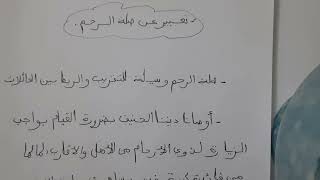 - تعبير عن صلة الرحم .
- صلة الرحم وسيلة للتقريب والربط بين العائلات
- أوصانا ديننا الحنيف بضرورة القيام بواجب
الزيارة لذوي الأرحام من الأهل والأقارب لما لها
من